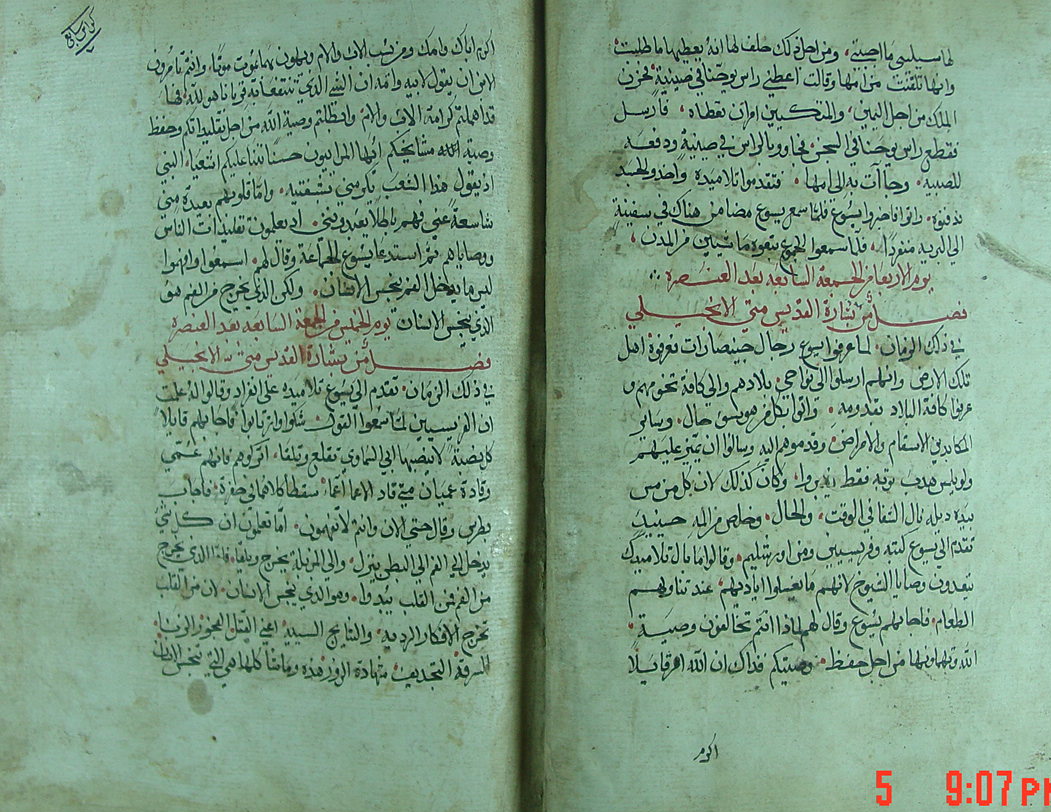 لها سيليني ما احببته ومن اجل ذلك حلف لها انه يعطيها ما طلبت
وانها تلقنت من امها وقالت اعطيني راس يوحنا في صينية فحزن
الملك من اجل اليمين والمتكيين امران تعطاه فارسل
فقطع راس يوحنا في السجن فجاوو بالراس في صينية ودفعه
للصبيه وجاآت به الى امها فتقدموا تلاميذه واخذو الجسد
ودفنوه واتوا فاخبروا يسوع فلما سمع يسوع مضا من هناك في سفينة
الى البريه منفردا فلما سمعوا الجموع تبعوه ماشيين من المدن
يوم الاربعا من الجمعة السابعه بعد العنصره
فصل من بشارة القديس متي الانجيلي
في ذلك الزمان لما عرفوا يسوع رجال جينصارات تعرفوه اهل
تلك الارض وانهم ارسلوا الى نواحي بلادهم والى كافة تخومهم و
عرفوا كافة البلاد بقدومه واتوا بكل من هو بسو حال وساير
المكابدين الاسقام والامراض وقدموهم اليه وسالوا ان يتحنن عليهم
ولو بلمس هدب ثوبه فقط فيبروا وكان كذلك لان كل من مس
بيده ذيله نال الشفا في الوقت والحال وخلص مرالله حينيذ
تقدم الى يسوع كتبه وفريسيين ومن اورشليم وقالوا ما بال تلاميذك
يتعدون وصايا الشيوخ لانهم ما يغسلوا اياديهم عند تناولهم
الطعام فاجابهم يسوع وقال لهم لماذا انتم تخالفون وصية
الله وتهملونها من اجل حفظ وصيتكم فذاك ان الله امر قايلا
اكرم
كراس سابع
اكرم اباك وامك ومن يسب الاب والام ويهون بهما يموت موتا وانتم تامرون
الانسان يقول لابيه وامه ان الشي الذي تنتفعا به قربانا هو لله فها
قد اهملتم كرامة الاب والام وابطلتم وصية الله من اجل تقليداتكم وحفظ
وصية مشايخكم ايها المراييون حسنا تنبا عليكم اشعيا النبي
اذ يقول هذا الشعب يكرمني بشفتيه واما قلوبهم بعيدة مني
شاسعة عني فهم باطلا يعبدونني اذ يعلمون تقليدات الناس
ووصاياهم ثم استدعا يسوع الجماعة وقال لهم اسمعوا وافهموا
ليس ما يدخل الفم ينجس الانسان ولكن الذي يخرج من الفم هو
الذي ينجس الانسان يوم الخميس من الجمعة السابعه بعد العنصره
فصل من بشارة القديس متي الانجيلي
في ذلك الزمان تقدم الى يسوع تلاميذه على انفراد وقالوا له علمت
ان الفريسيين لما سمعوا القول شكوا وارتابوا فاجابهم قايلا
كل نصبة لا ينصبها ابي السماوي تقلع وتلقا اتركوهم فانهم عمي
وقادة عميان متي قاد الاعما اعما سقطا كلاهما في حفرة فاجاب
بطرس وقال حتي الان وانتم لا تفهمون اما تعلمون ان كل شي
يدخل الى الفم الى البطن ينزل والى المزبلة يخرج ويلقا فاما الذي يخرج
من الفم فمن القلب يبدوا وهو الذي ينجس الانسان لان من القلب
تخرج الافكار الرديه والنتايج السييه اعني القتل الفجور الزنا
السرقة التجديف شهادة الزور هذه وما ضاها كلها هي التي تنجس الانسان
5 9:07 PM